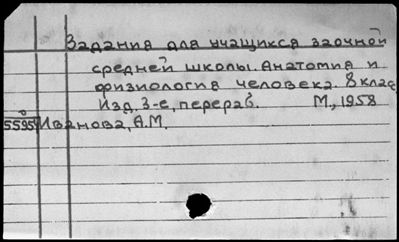 Задания для учащихся заочной
средней школы. Анатомия и
физиология человека. 8 клас
Изд. 3-е, перераб. М., 1958
55959 Иванова, А.М.